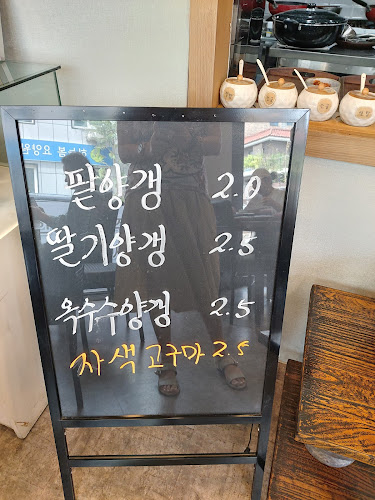 팥양갱 2.0
딸기양갱 2.5
옥수수양갱 2.5
자색고구마 2.5